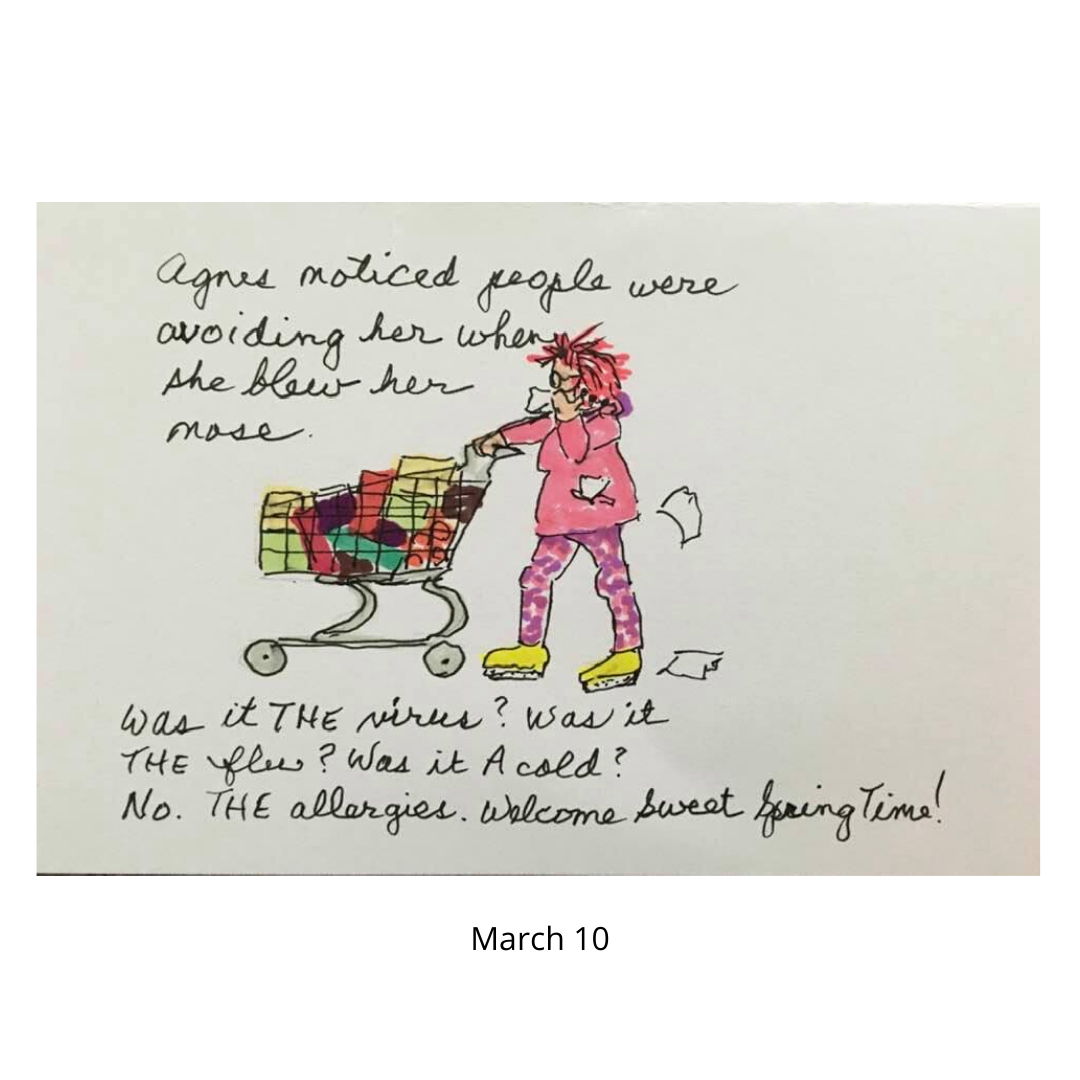 Agnes noticed people were
avoiding her when
she blew her
nose.
Was it THE virus? Was it
THE flu? Was it A cold?
No. THE allergies. Welcome Sweet Spring Time!
March 10